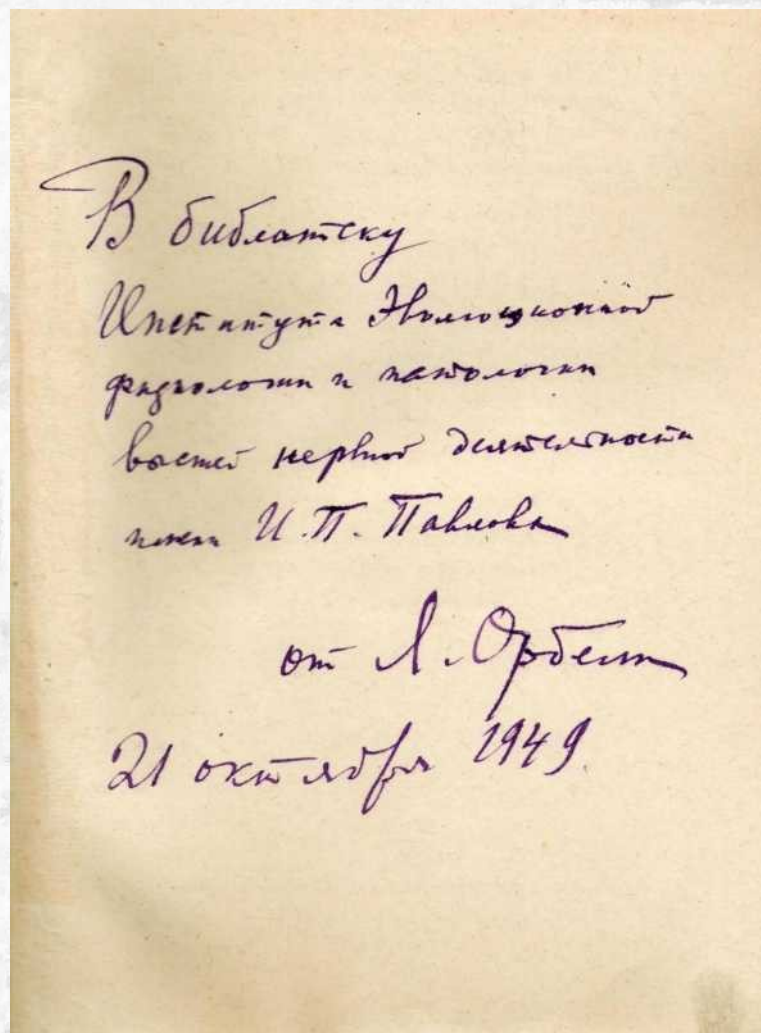 В библиотеку
Института Эволюционной
физиологии и патологии
высшей нервной деятельности
имени И.П. Павлова
от Л. Орбели
21 октября 1949.